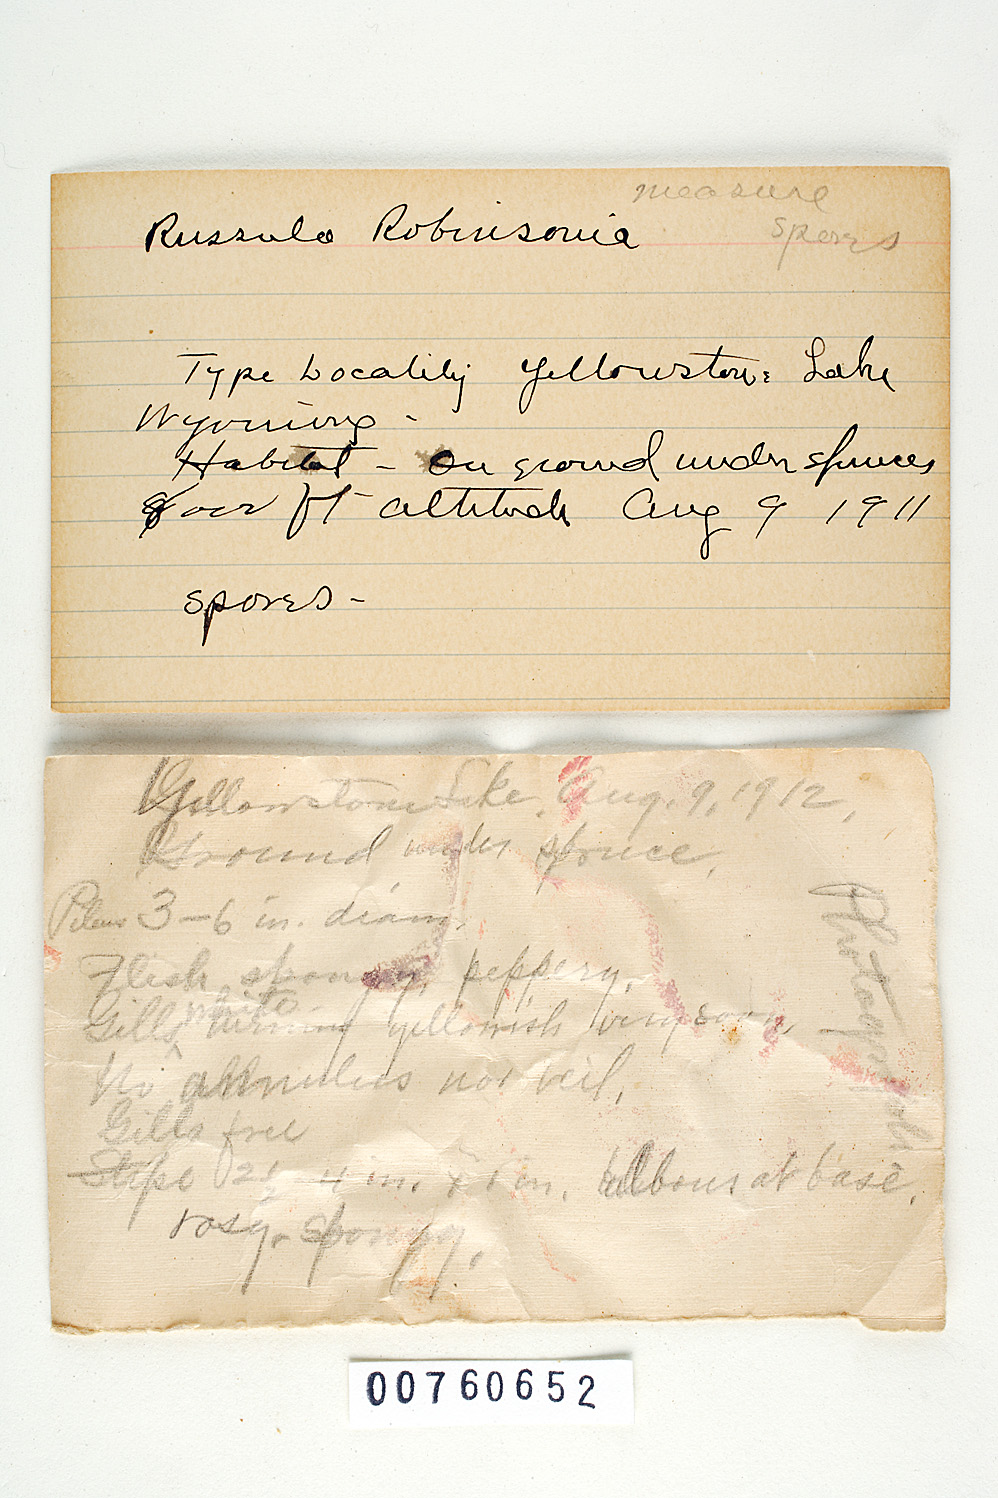 measure
spores
Russula Robinsonia
Type Locality Yellowstone Lake
Wyoming -
Habitat - On ground under spruces
ft altitude Aug 9 1911
spores -
Yellowstone Lake, Aug. 9, 1912,
Ground under spruce,
Pileus 3-6 in. diam.
Flesh spongy, peppery,
white
Gills ^ turning yellowish very soon,
No annulus nor veil,
Gills free
Stipe 2½ - 4 in. x 1 in. at base,
rosy, spongy,
Photograph
00760652